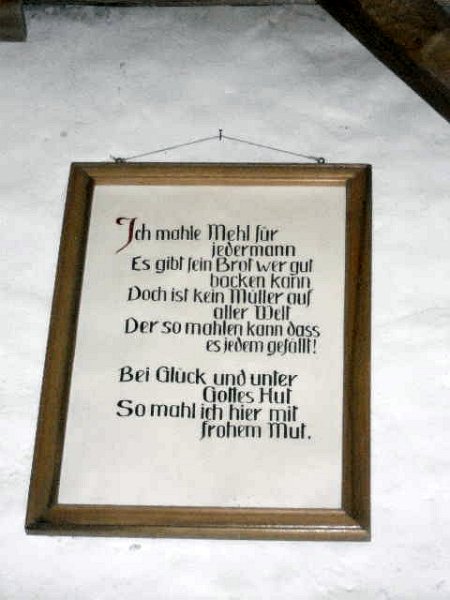 Ich mahle Mehl für
jedermann
Es gibt fein Brot wer gut
backen kann
Doch ist kein Müller auf
aller Welt
Der so mahlen kann dass
es jedem gefällt!
Bei Glück und unter
Gottes Hut
So mahl ich hier mit
frohem Mut.